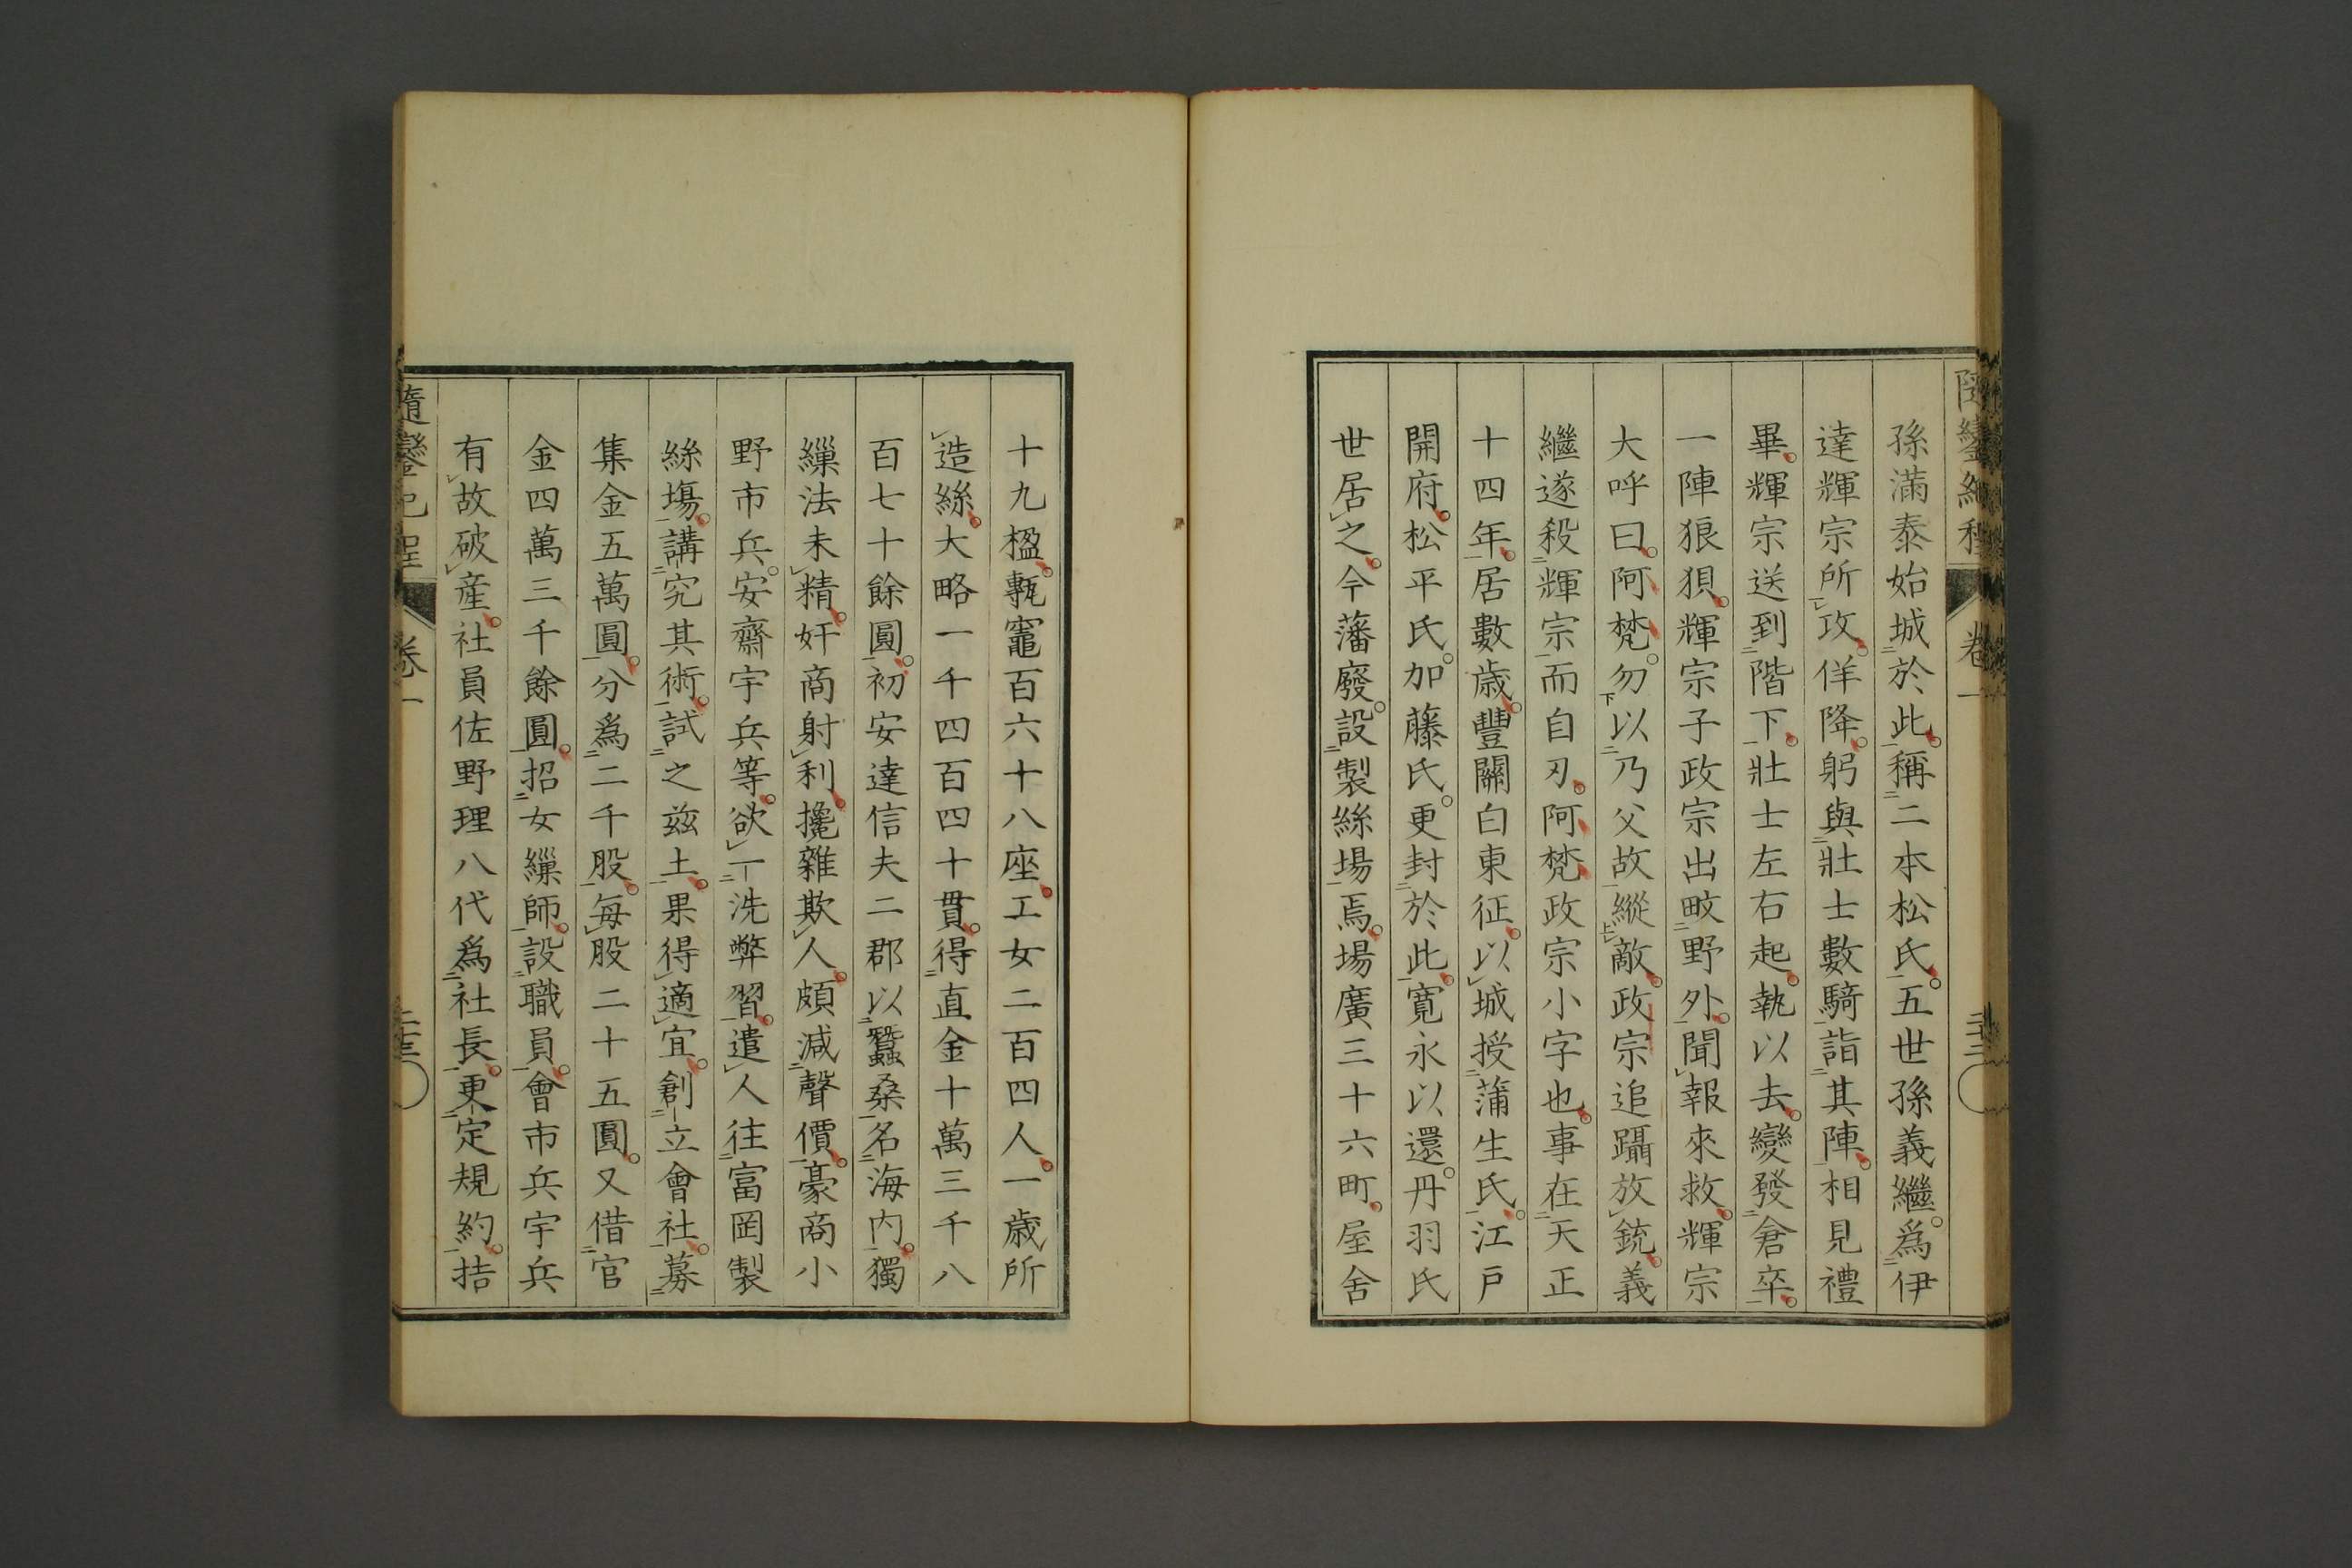 孫滿泰始城於此稱二本松氏五世孫義繼爲伊
達輝宗所攻佯降躬與壯士數騎詣其陣相見禮
畢輝宗送到階下壯士左右起執以去變發倉卒
一陣狼狽輝宗子政宗出畋野外聞報來救輝宗
大呼曰阿梵勿以乃父故縱敵政宗追躡放銃義
繼遂殺輝宗而自刃阿梵政宗小字也事在天正
十四年居數歲豐關白東征以城授蒲生氏江戶
開府松平氏加藤氏更封於此寬永以還丹羽氏
世居之今藩廢設製絲場焉場廣三十六町屋舍
十九楹甎竈百六十八座工女二百四人一歲所
造絲大略一千四百四十貫得直金十萬三千八
百七十餘圓初安達信夫二郡以蠶桑名海內獨
繅法未精奸商射利攙雜欺人頗減聲價豪商小
野市兵安齋宇兵等欲一洗弊習遣人往富岡製
絲塲講究其術試之玆土果得適宜創立會社募
集金五萬圓分爲二千股每股二十五圓又借官
金四萬三千餘圓招女繅師設職員會市兵宇兵
有故破產社員佐野理八代爲社長更定規約拮
隨鑾紀程 卷一